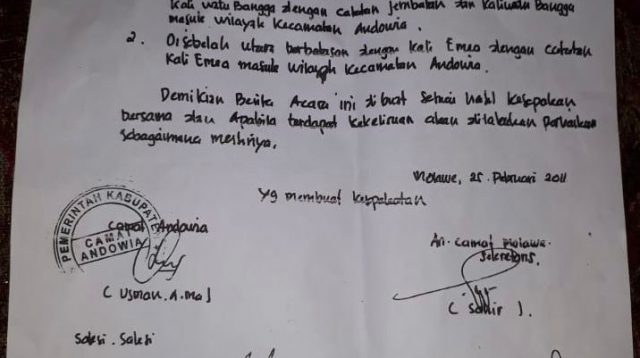 Kali Watu Bangga dengan Catatan Jembatan dan Kaliwatu Bangga
masuk wilayah Kecamatan Andowia.
2. Disebelah utara berbatasan dengan Kali Emea dengan catatan
Kali Emea masuk wilayah Kecamatan Andowia.
Demikian Berita Acara ini dibuat sesuai hasil kesepakatan
bersama dan Apabila terdapat kekeliruan akan diadakan perbaikan
sebagaimana mestinya.
Molawe, 25. Februari 2011
Yg membuat kesepakatan
Camat Andowia
PEMERINTAH KABUPATE
CAMAT
ANDOWIA
( Usman. A. Ma )
An. Camat Molawe.
Sekretaris.
( Sahir ).
Saksi. Saksi